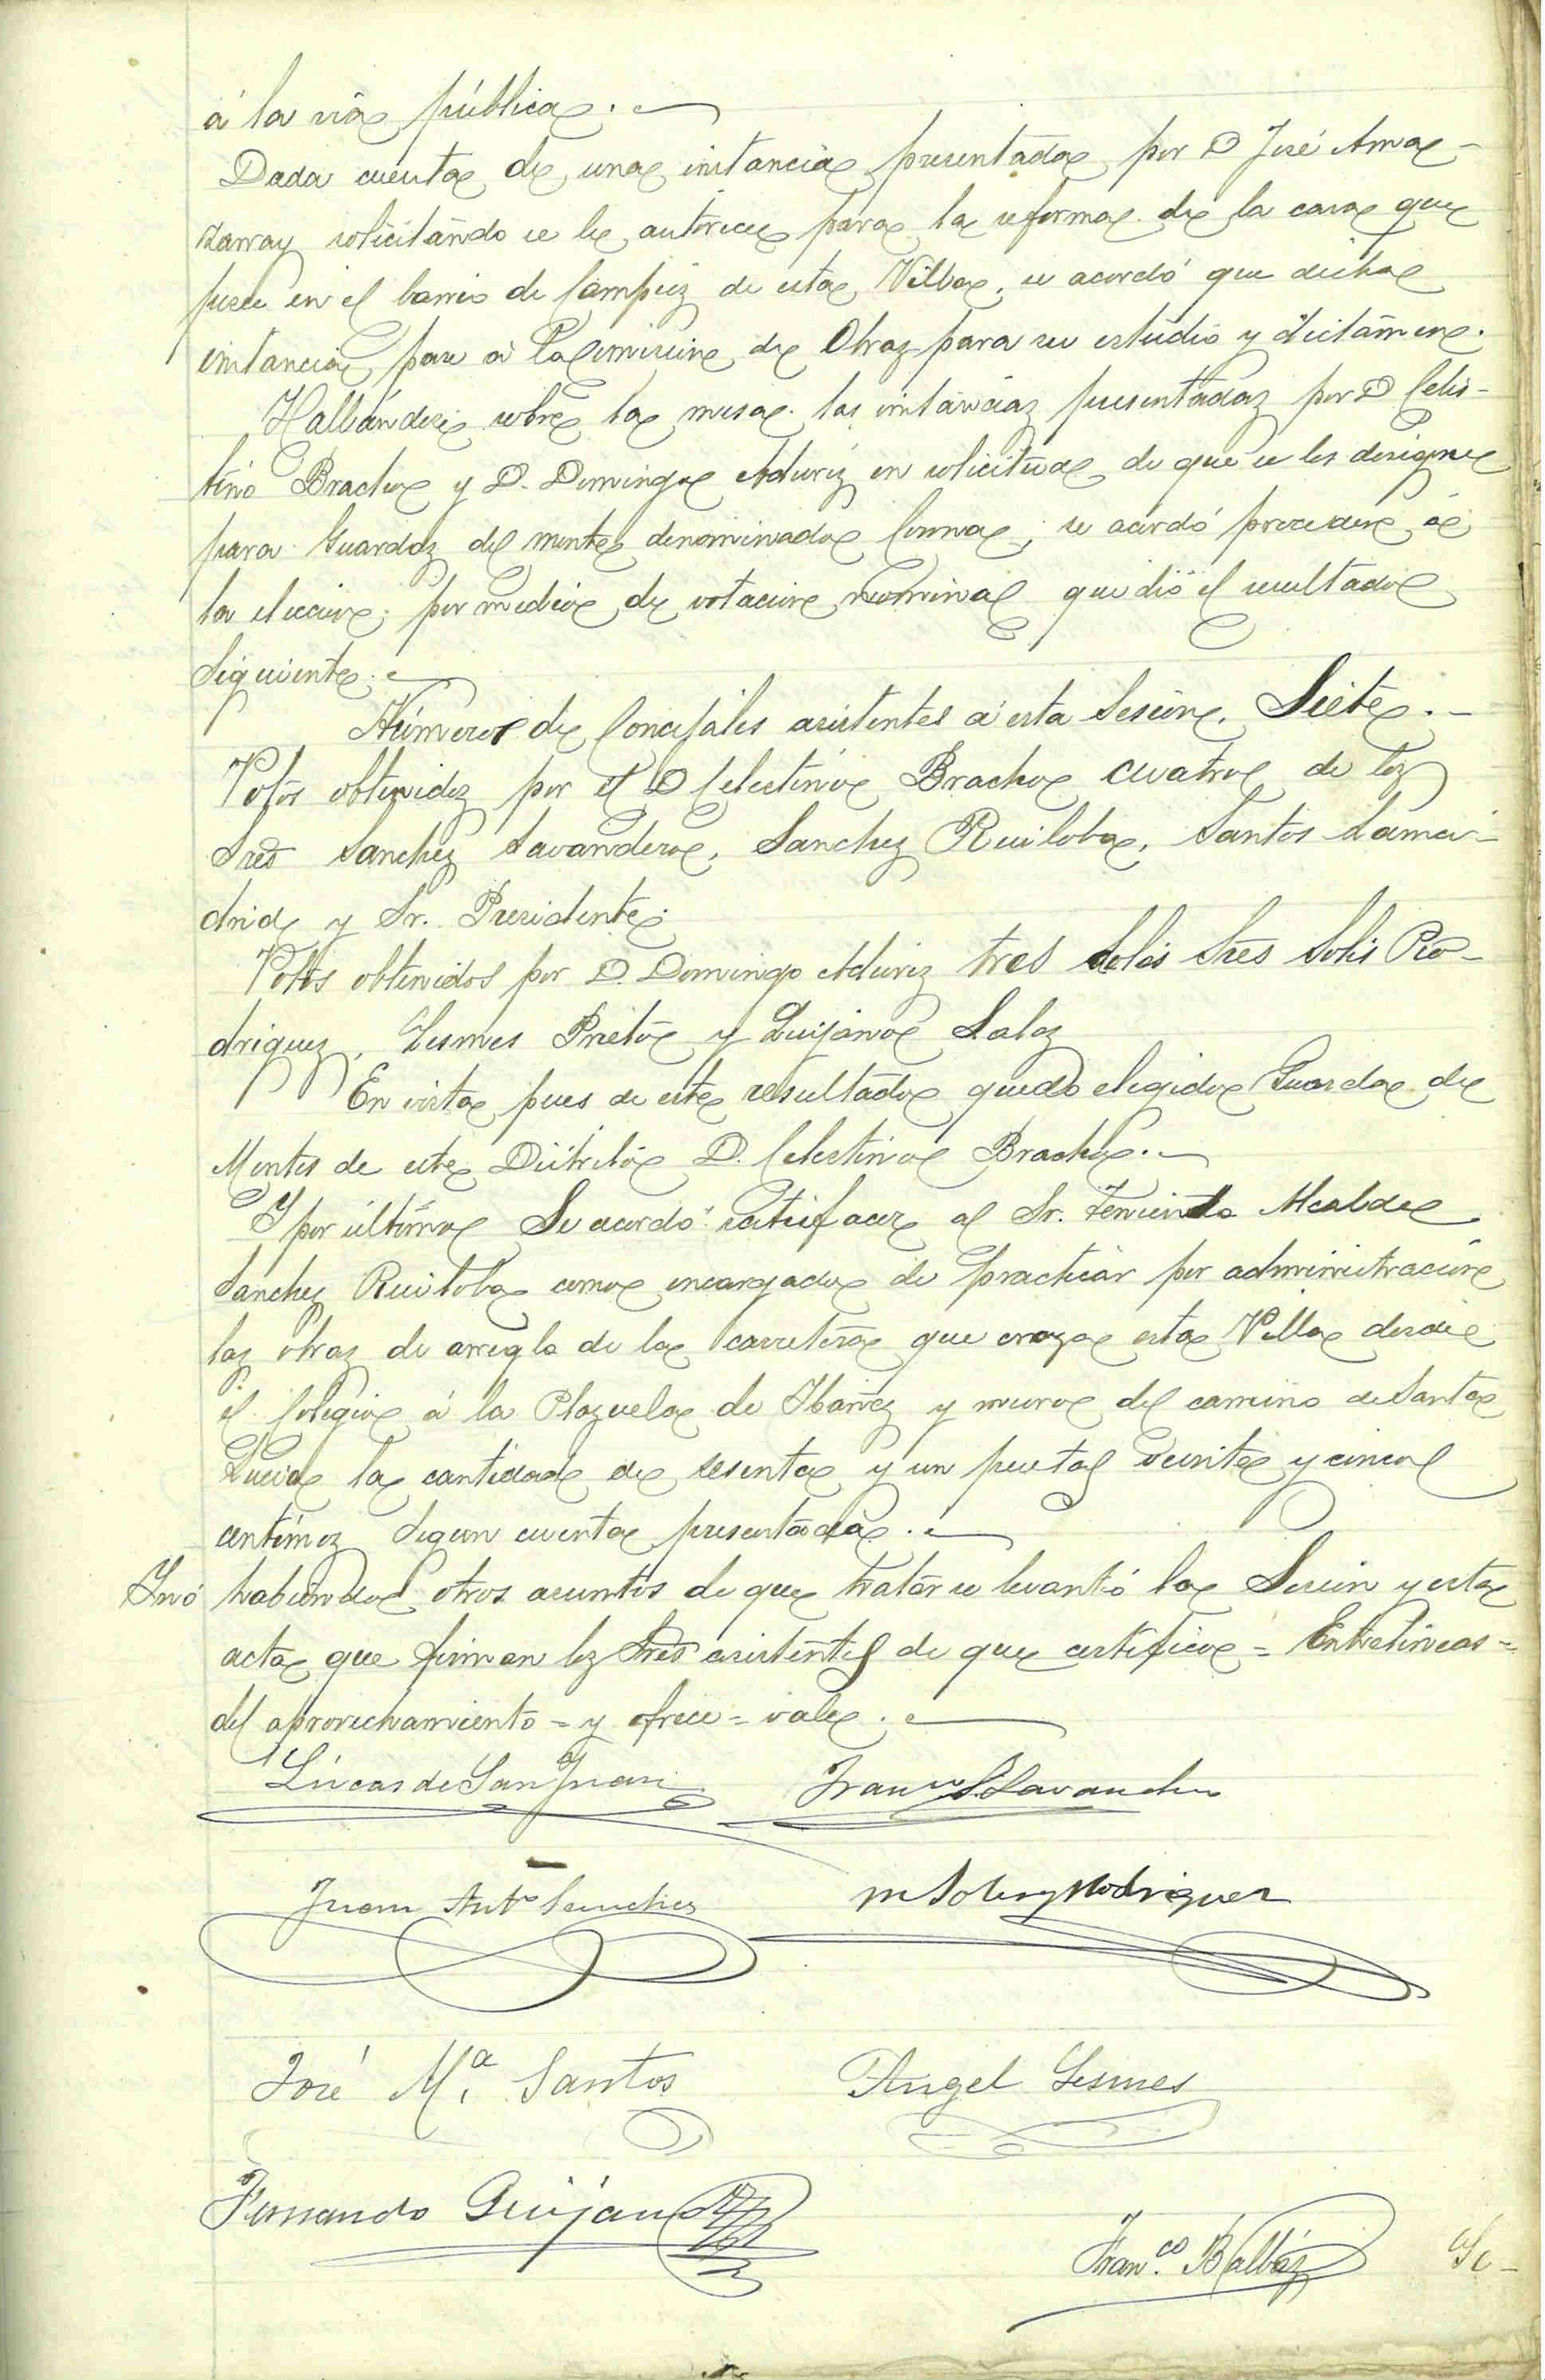 á la via pública.
Dada cuenta de una instancia presentada por D José Ama-
zarray solicitando se le autorice para la reforma de la casa que
posee en el barrio de Campiz de esta Villa, se acordó que dicha
instancia pase á la Comision de Obras para su estudio y dictámen.
Hallándose sobre la mesa las instancias presentadas por D Celes-
tino Bracho y D. Domingo Aduriz en solicitud de que se les designe
para Guardas del monte denominado Corona, se acordó proceder á
la eleccion por medio de votacion nominal que dió el resultado
siguiente.
Número de Concejales asistentes á esta Sesion, Siete.
Votos obtenidos por el D Celestino Bracho cuatro de los
Sres Sanchez Lavandero, Sanchez Ruiloba, Santos Lama-
drid y Sr. Presidente.
Votos obtenidos por D. Domingo Aduriz tres de los Sres Solis Ro-
driguez, Lesmes Prieto y Quijano Salas
En vista pues de este resultado quedó elegido Guarda de
Montes de este Distrito D. Celestino Bracho.
Y por último Se acordó satisfacer al Sr. Teniente Alcalde
Sanchez Ruiloba como encargado de practicar por administracion
las obras de arreglo de la carretera que cruza esta Villa desde
el Colegio á la Plazuela de Ibañez y muro del camino de Santa
Lucia la cantidad de sesenta y un pesetas veinte y cinco
centimos segun cuenta presentada.
Y no habiendo otros asuntos de que tratar se levantó la Sesion y esta
acta que firman los Sres asistentes de que certifico = Entrelineas =
del aprovechamiento = y ofrece = vale.
Lúcas de San Juan Franco S. Lavandero
Juan Anto Sanchez M Solis y Rodriguez
José M.a Santos Angel Lesmes
Fernando Quijano
Fran.co Balbás Se-